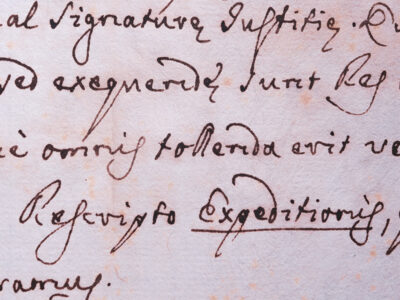 al Signaturę Justitię. Qu
ved exequendę sunt Res
è omnis tollenda erit ve
Rescripto Expeditionis,
ramus.